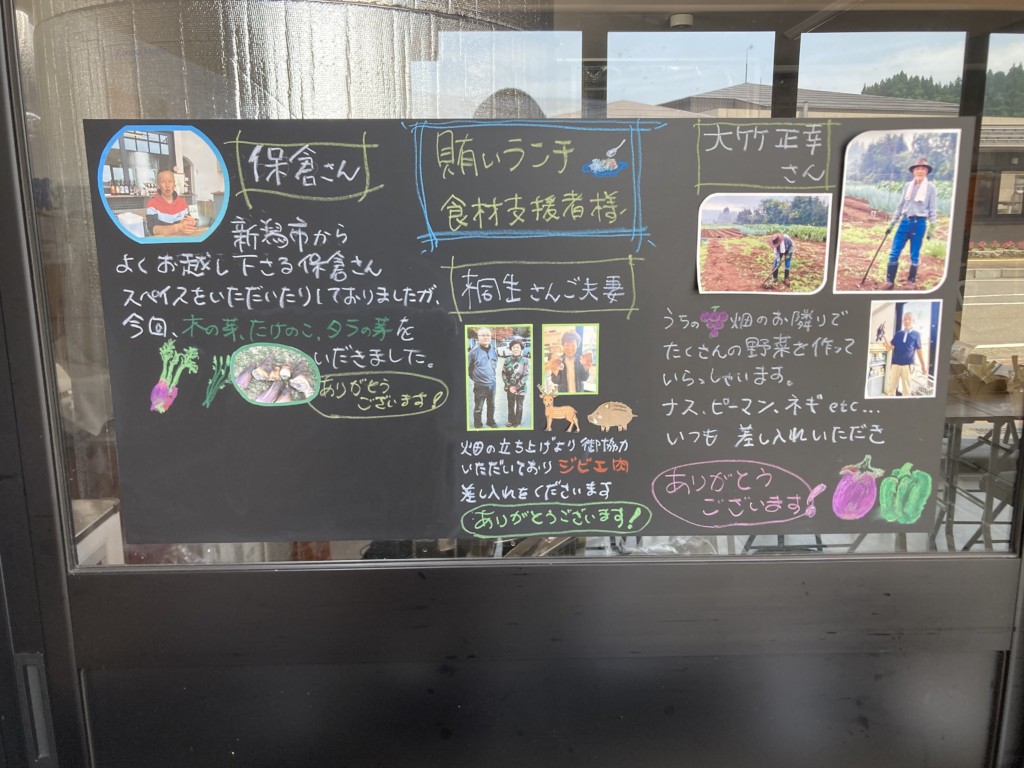 賄いランチ
食材支援者様
保倉さん
新潟市から
よくお越し下さる保倉さん
スペイスをいただいたりしておりましたが、
今回、木の芽、たけのこ、タラの芽を
いだきました。
ありがとう
ございます!
桐生さんご夫妻
畑の立ち上げより御協力
いただいており ジビエ肉
差し入れをくださいます
ありがとうございます!
大竹正幸
さん
うちの畑のお隣りで
たくさんの野菜を作って
いらっしゃいます。
ナス、ピーマン、ネギ etc...
いつも 差し入れいただき
ありがとう
ございます!